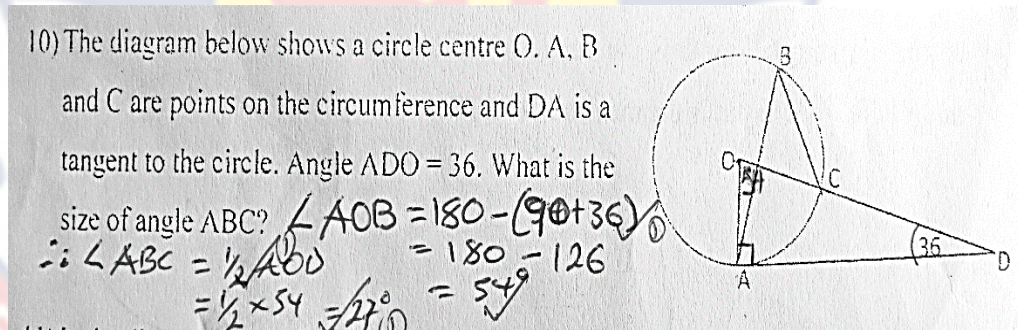 10) The diagram below shows a circle centre O. A, B
and C are points on the circumference and DA is a
tangent to the circle. Angle ADO = 36. What is the
size of angle ABC? ∠AOB = 180 - (90+36)
= 180 - 126
= 54°
∴ ∠ABC = ½ AOD
= ½ × 54 = 27°
B
O
54
C
36
D
A